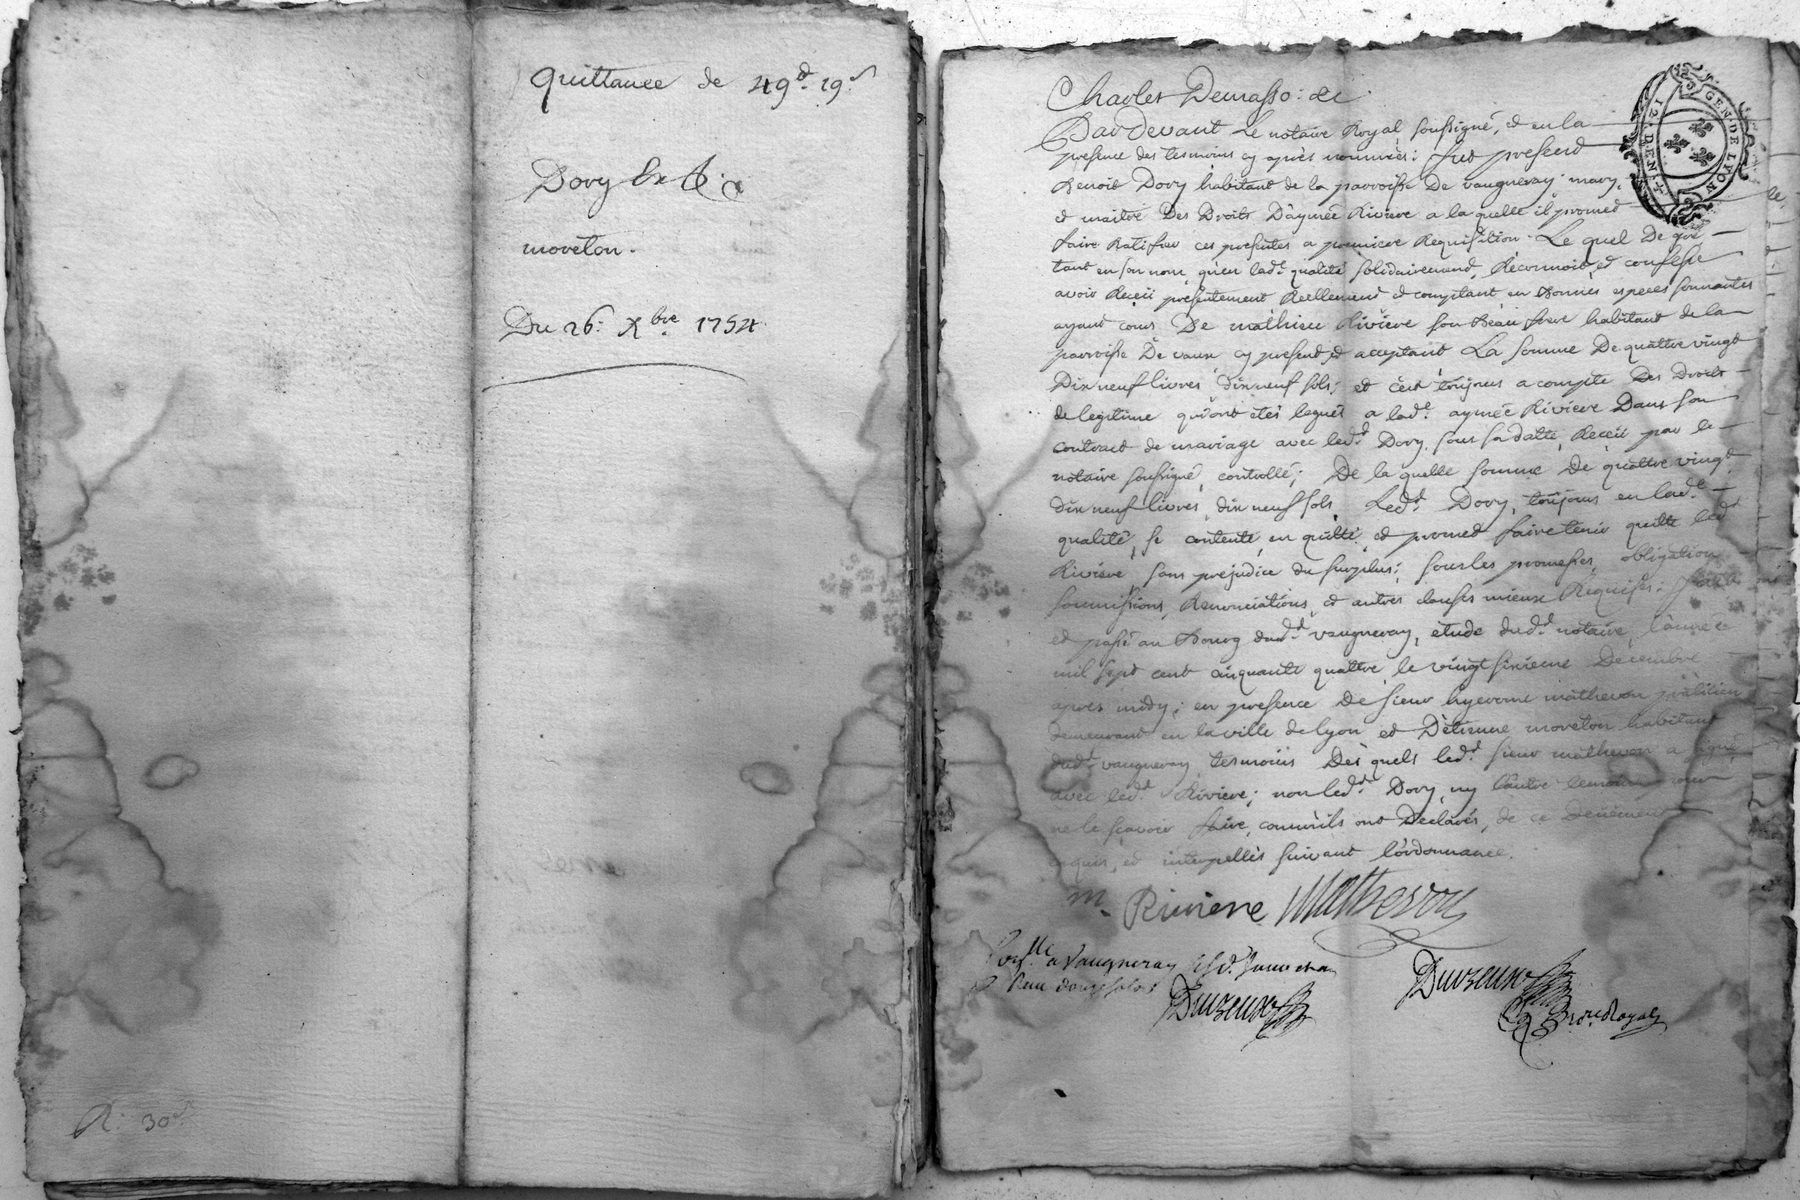 Quittance de 49# 19s
Dory
moreton.
Du 26: Xbre 1754
R: 30s
GEN. DE LYON
12. DEN
Charles Demasso: &c
Pardevant Le notaire Royal soussigné, et en la
presence des tesmoins cy après nommés; fut present
Benoit Dory habitant de la parroisse De vaugneray, mary,
et maitre Des Droits D'aymée Riviere a la quelle il promet
faire Ratifier ces presentes a premiere Requisition. Le quel De gré
tant en son nom qu'en lade. qualité solidairement, Reconnoit, et confesse
avoir Reçeü presentement Reellement et comptant en bonnes especes sonnantes
ayant cours De mathieu Riviere son beau frere habitant de la
parroisse De vaux cy present, et acceptant La somme De quattre vingt
Dix neuf livres dix neuf sols; et c'est toujours a compte Des Droits
de legitime qui ont étés legués a lade. aymée Riviere Dans son
contract de mariage avec ledt. Dory, sous sa datte, Reçeü par le
notaire soussigné, controllé; De la quelle somme De quattre vingt
dix neuf livres, dix neuf sols, Ledt. Dory, toujours en lade.
qualité, se contente, en quitte, et promet faire tenir quitte ledt
Riviere, sans prejudice du surplus; sous les promesses, obligation
soumissions, Renonciations, et autres clauses mieux Requises: fait
et passé au bourg dudt. vaugneray, etude dudt. notaire, l'année
mil sept cent cinquante quattre, le vingt sixieme Decembre
apres midy; en presence De sieur hyerome mathevon pratitien
demeurant en la ville de lyon et D'etienne moreton habitant
dudt. vaugneray, tesmoins Des quels ledt. sieur mathevon a signé
avec ledt. Riviere; non ledt. Dory, ny l'autre temoin, pour
ne le sçavoir faire, comm'ils ont Declarés, de ce
enquis, et interpellés suivant l'ordonnance.
m. Riviere Mathevon
a Vaugneray
Reçu douze sols